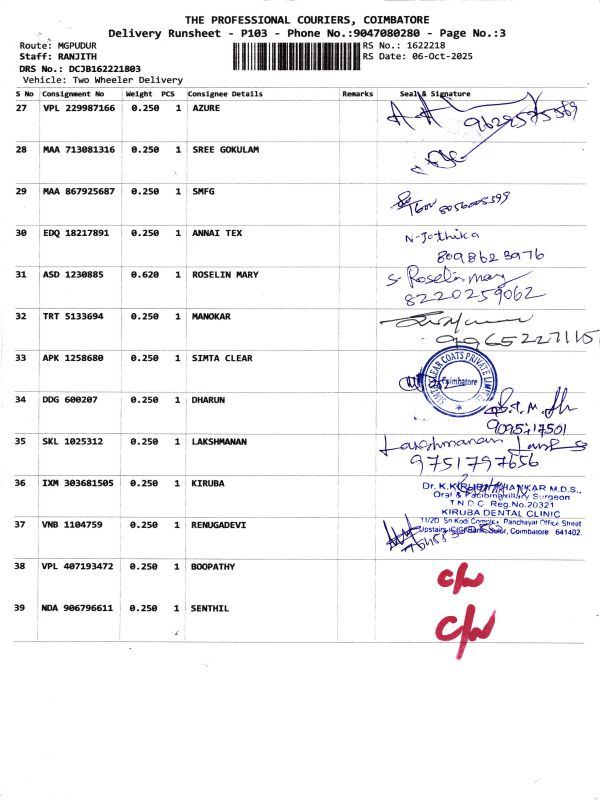 THE PROFESSIONAL COURIERS, COIMBATORE
Delivery Runsheet - P103 - Phone No.:9047080280 - Page No.:3
Route: MGPUDUR RS No.: 1622218
Staff: RANJITH RS Date: 06-Oct-2025
DRS No.: DCJB162221803
Vehicle: Two Wheeler Delivery
S No Consignment No Weight PCS Consignee Details Remarks Seal & Signature
27 VPL 229987166 0.250 1 AZURE
28 MAA 713081316 0.250 1 SREE GOKULAM
29 MAA 867925687 0.250 1 SMFG
30 EDQ 18217891 0.250 1 ANNAI TEX N-Jothika
31 ASD 1230885 0.620 1 ROSELIN MARY S. Roselin mary
8220259062
32 TRT 5133694 0.250 1 MANOKAR
9965227115
33 APK 1258680 0.250 1 SIMTA CLEAR
CLEAR COATS PRIVATE LIMITED
Coimbatore
34 DDG 600207 0.250 1 DHARUN
9095717501
35 SKL 1025312 0.250 1 LAKSHMANAN Lakshmanan
9751797656
36 IXM 303681505 0.250 1 KIRUBA
Dr. K.KIRUBHASHANKAR M.D.S.,
Oral & Faciomaxillary Surgeon
T N D C Reg.No.20321
KIRUBA DENTAL CLINIC
37 VNB 1104759 0.250 1 RENUGADEVI
11/2D Sri Kodi Complex, Panchayat Office Street
Upstairs ICICI Bank, Sulur, Coimbatore 641402.
38 VPL 407193472 0.250 1 BOOPATHY c/w
39 NDA 906796611 0.250 1 SENTHIL c/w